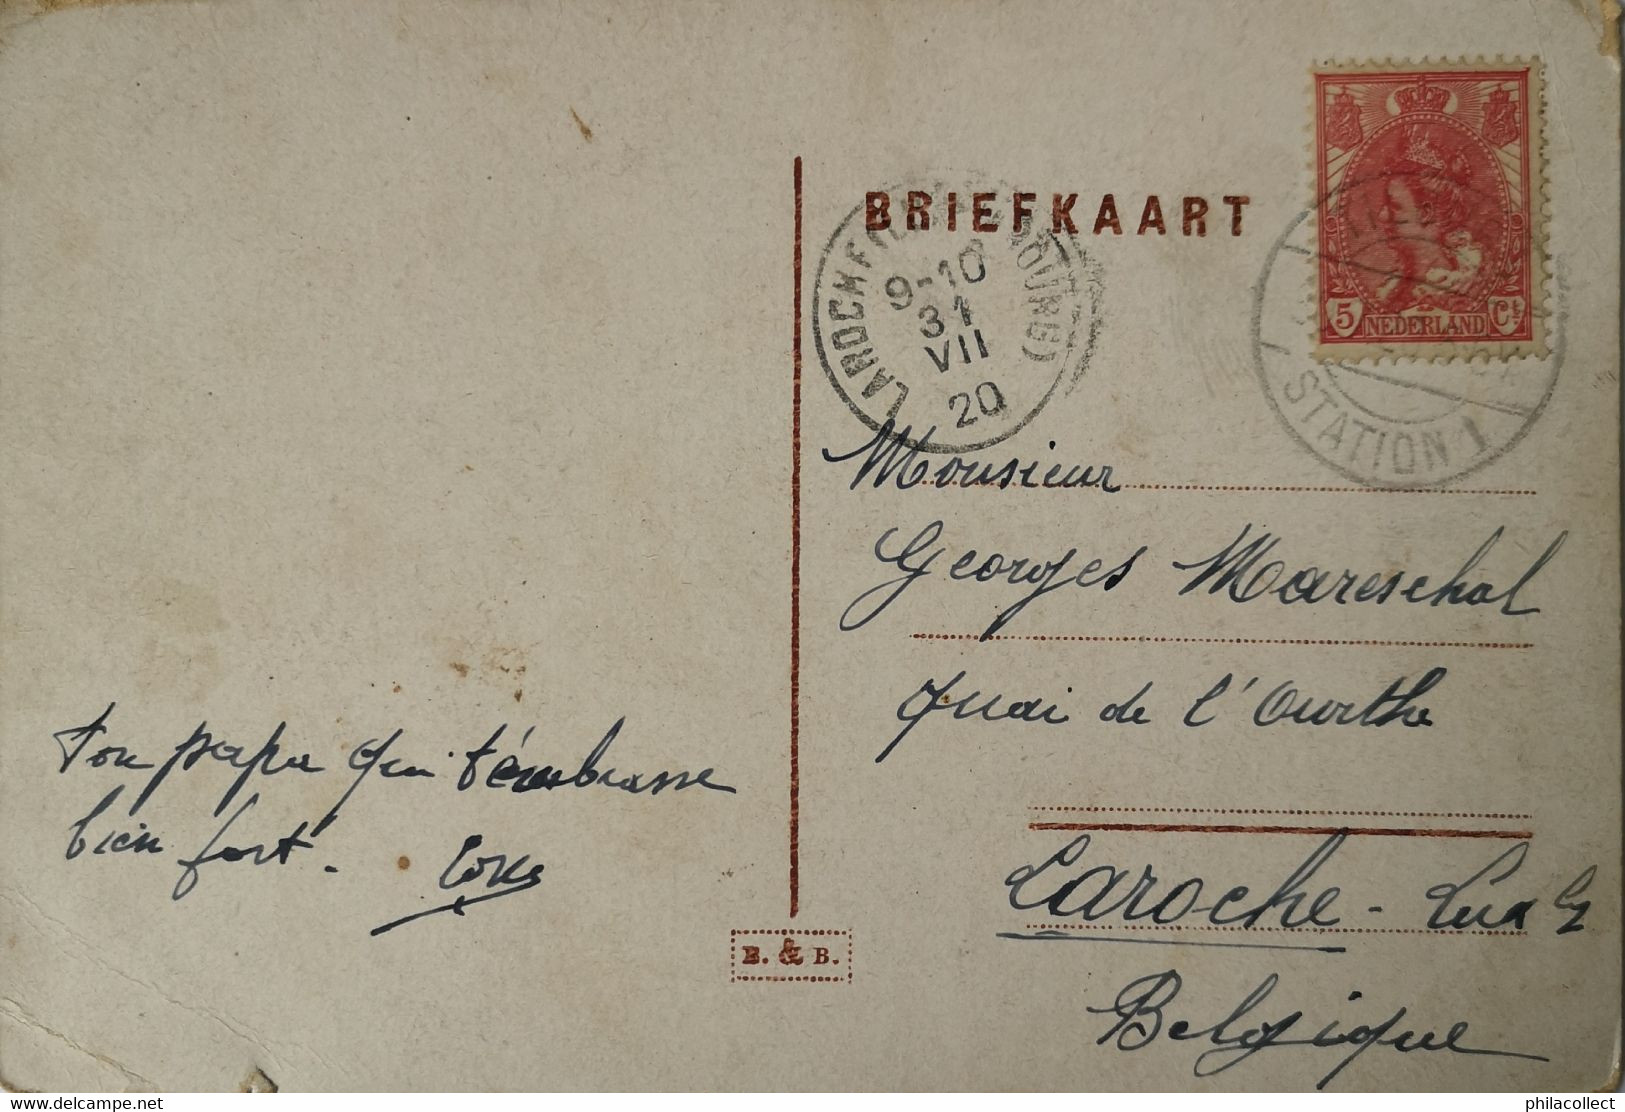 BRIEFKAART
LAROCHE (LUXEMBOURG)
9-10
31
VII
20
5 NEDERLAND Ct
STATION 1
Monsieur
Georges Mareschal
Quai de l'Ourthe
Laroche - Lux
Belgique
Ton papa qui t'embrasse
bien fort.
E. & B.
www.delcampe.net
philacollect